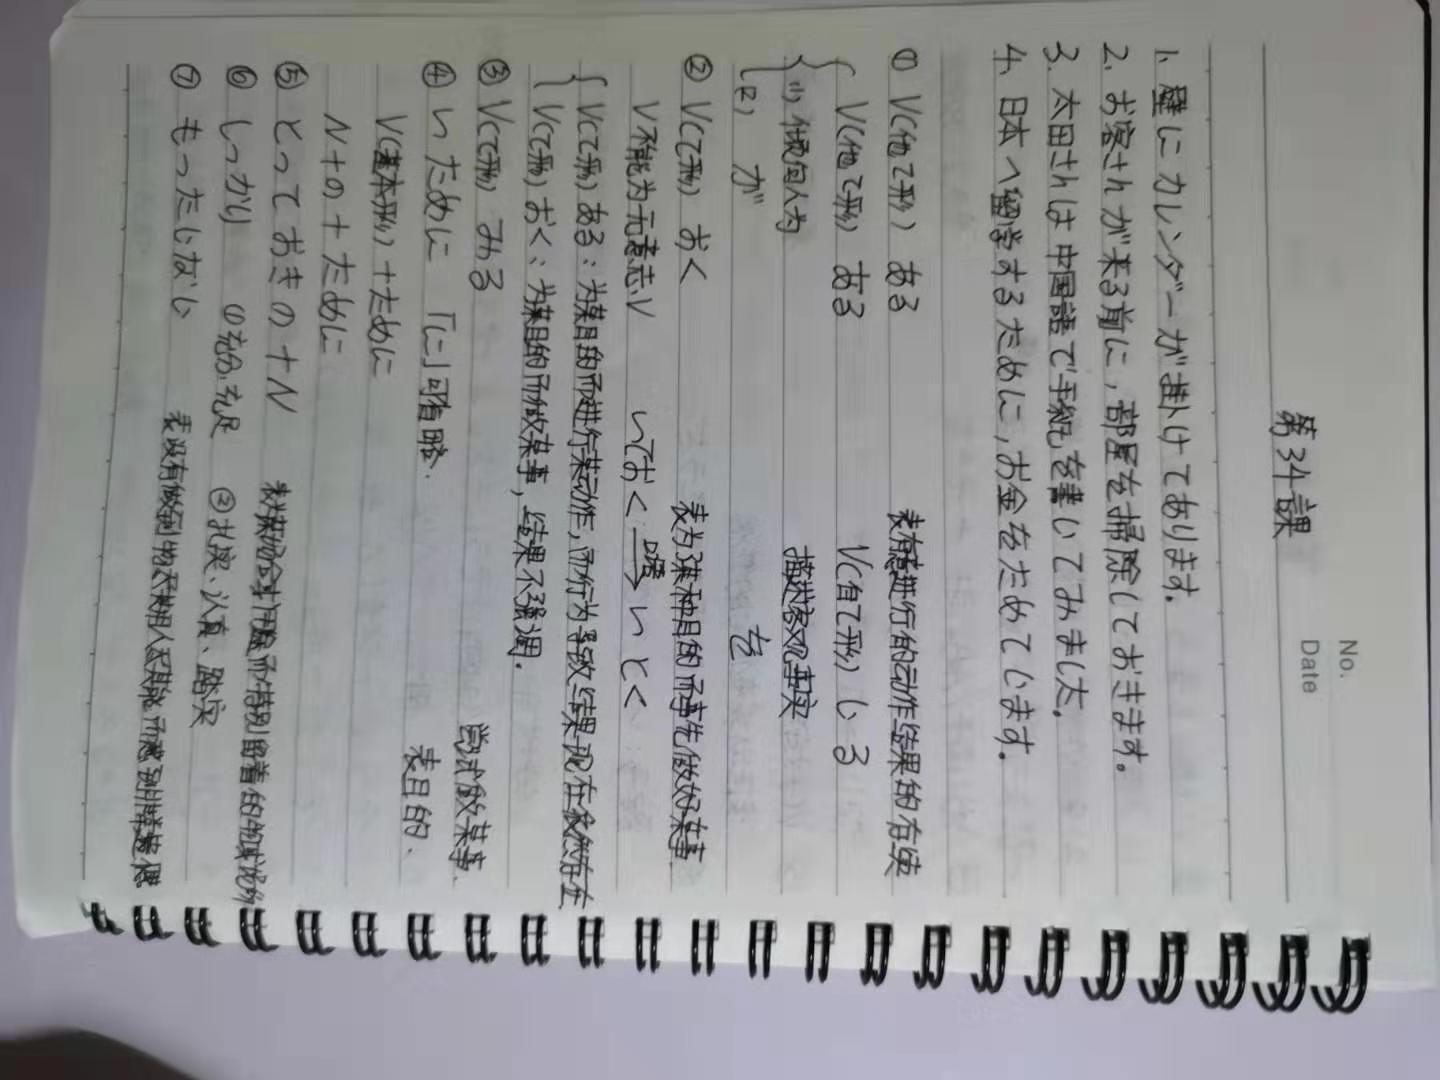 No.
Date
第34課
1. 壁にカレンダーが掛けてあります。
2. お客さんが来る前に,部屋を掃除しておきます。
3. 太田さんは中国語で手紙を書いてみました。
4. 日本へ留学するために,お金をためています。
① V(他て形) ある 表有意进行的动作结果的存续
V(他て形) ある V(自て形) いる
(1) 倾向人为 描述客观事实
(2) が を
② V(て形) おく 表为了某种目的而事先做好某事
V不能为无意志V 〜ておく → 〜とく
V(て形) ある:为某目的而进行某动作,而行为导致结果现在仍然存在
V(て形) おく:为某目的而做某事,结果不强调.
③ V(て形) みる 尝试做某事.
④ 〜ために 「に」可省略. 表目的.
V(基本形)+ために
N+の+ために
⑤ とっておきの+N
⑥ しっかり ①充分,充足 ②扎实、认真、踏实
⑦ もったいない